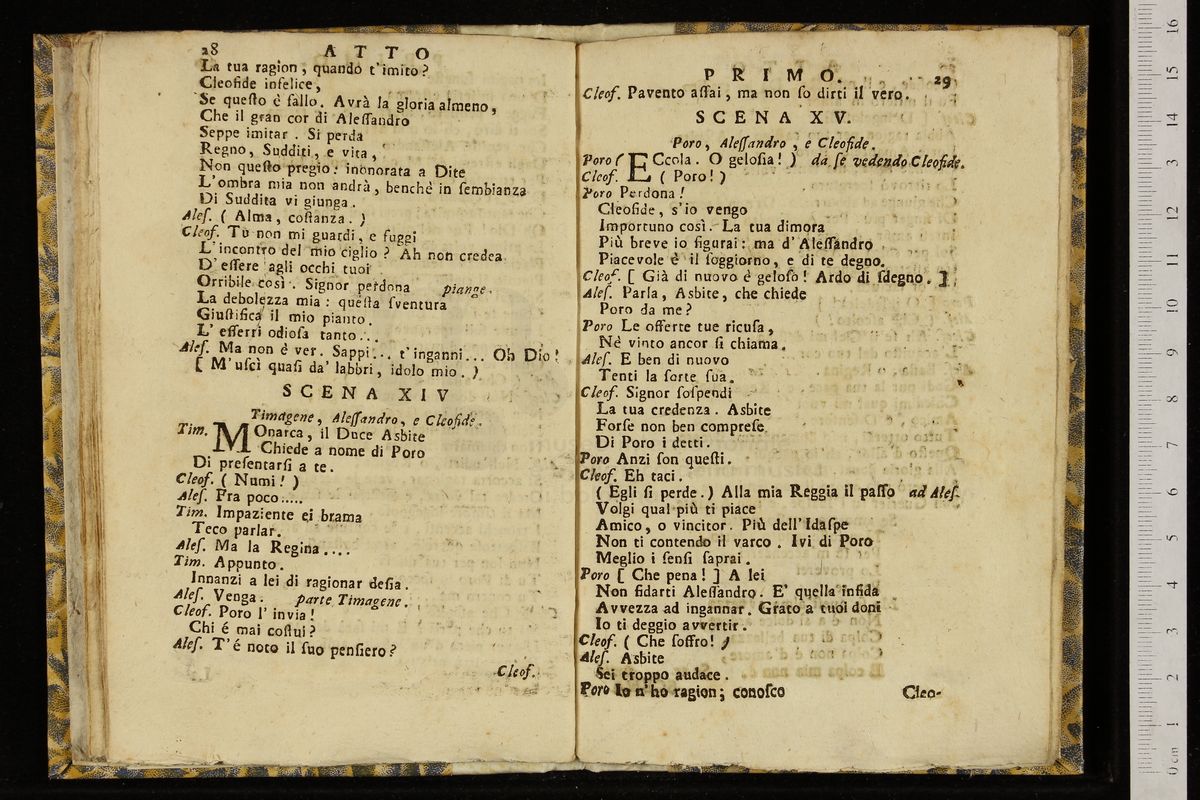 28 ATTO
La tua ragion, quando t'imito?
Cleofide infelice,
Se queſto è fallo. Avrà la gloria almeno,
Che il gran cor di Aleſſandro
Seppe imitar. Si perda
Regno, Sudditi, e vita,
Non queſto pregio: inonorata a Dite
L'ombra mia non andrà, benchè in ſembianza
Di Suddita vi giunga.
Aleſ. ( Alma, coſtanza. )
Cleof. Tu non mi guardi, e fuggi
L'incontro del mio ciglio? Ah non credea
D'eſſere agli occhi tuoi
Orribile così. Signor perdona piange.
La debolezza mia: queſta ſventura
Giuſtifica il mio pianto.
L'eſſerti odioſa tanto...
Aleſ. Ma non è ver. Sappi... t'inganni... Oh Dio!
[ M'uſcì quaſi da' labbri, idolo mio. )
SCENA XIV
Timagene, Aleſſandro, e Cleofide.
Tim. MOnarca, il Duce Asbite
Chiede a nome di Poro
Di preſentarſi a te.
Cleof. ( Numi! )
Aleſ. Fra poco.....
Tim. Impaziente ei brama
Teco parlar.
Aleſ. Ma la Regina....
Tim. Appunto.
Innanzi a lei di ragionar deſia.
Aleſ. Venga. parte Timagene.
Cleof. Poro l'invia!
Chi é mai coſtui?
Aleſ. T'é noto il ſuo penſiero?
Cleof.
PRIMO. 29
Cleof. Pavento aſſai, ma non ſo dirti il vero.
SCENA XV.
Poro, Aleſſandro, e Cleofide.
Poro ( ECcola. O geloſia! ) da ſe vedendo Cleofide.
Cleof. ( Poro! )
Poro Perdona!
Cleofide, s'io vengo
Importuno così. La tua dimora
Più breve io figurai: ma d'Aleſſandro
Piacevole è il ſoggiorno, e di te degno.
Cleof. [ Già di nuovo è geloſo! Ardo di ſdegno. ]
Aleſ. Parla, Asbite, che chiede
Poro da me?
Poro Le offerte tue ricuſa,
Nè vinto ancor ſi chiama.
Aleſ. E ben di nuovo
Tenti la ſorte ſua.
Cleof. Signor ſoſpendi
La tua credenza. Asbite
Forſe non ben compreſe
Di Poro i detti.
Poro Anzi ſon queſti.
Cleof. Eh taci.
( Egli ſi perde. ) Alla mia Reggia il paſſo ad Aleſ.
Volgi qual più ti piace
Amico, o vincitor. Più dell'Idaſpe
Non ti contendo il varco. Ivi di Poro
Meglio i ſenſi ſaprai.
Poro [ Che pena! ] A lei
Non fidarti Aleſſandro. E' quella infida
Avvezza ad ingannar. Grato a tuoi doni
Io ti deggio avvertir.
Cleof. ( Che ſoffro! )
Aleſ. Asbite
Sei troppo audace.
Poro Io n'ho ragion; conoſco
Cleo-
16
15
14
13
12
11
10
9
8
7
6
5
4
3
2
1
0 cm